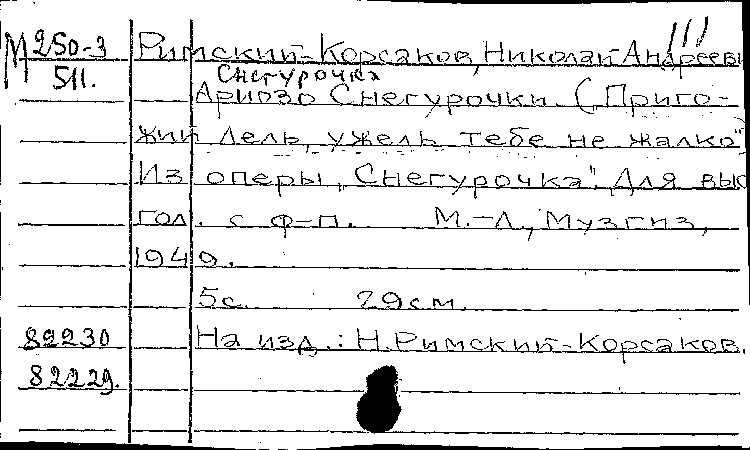 М 250-3 Римский-Корсаков, Николай Андрееви
511. Снегурочка
Ариозо Снегурочки. („Приго-
жий Лель, ужель тебе не жалко")
Из оперы „Снегурочка". Для выс
гол. с ф-п. М.-Л., Музгиз,
1949.
5с. 29см.
82230 На изд.: Н.Римский-Корсаков.
82229.